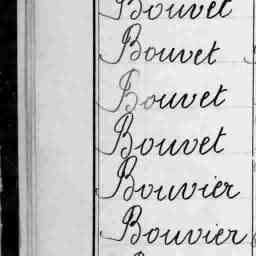 Bouvet
Bouvet
Bouvet
Bouvet
Bouvier
Bouvier